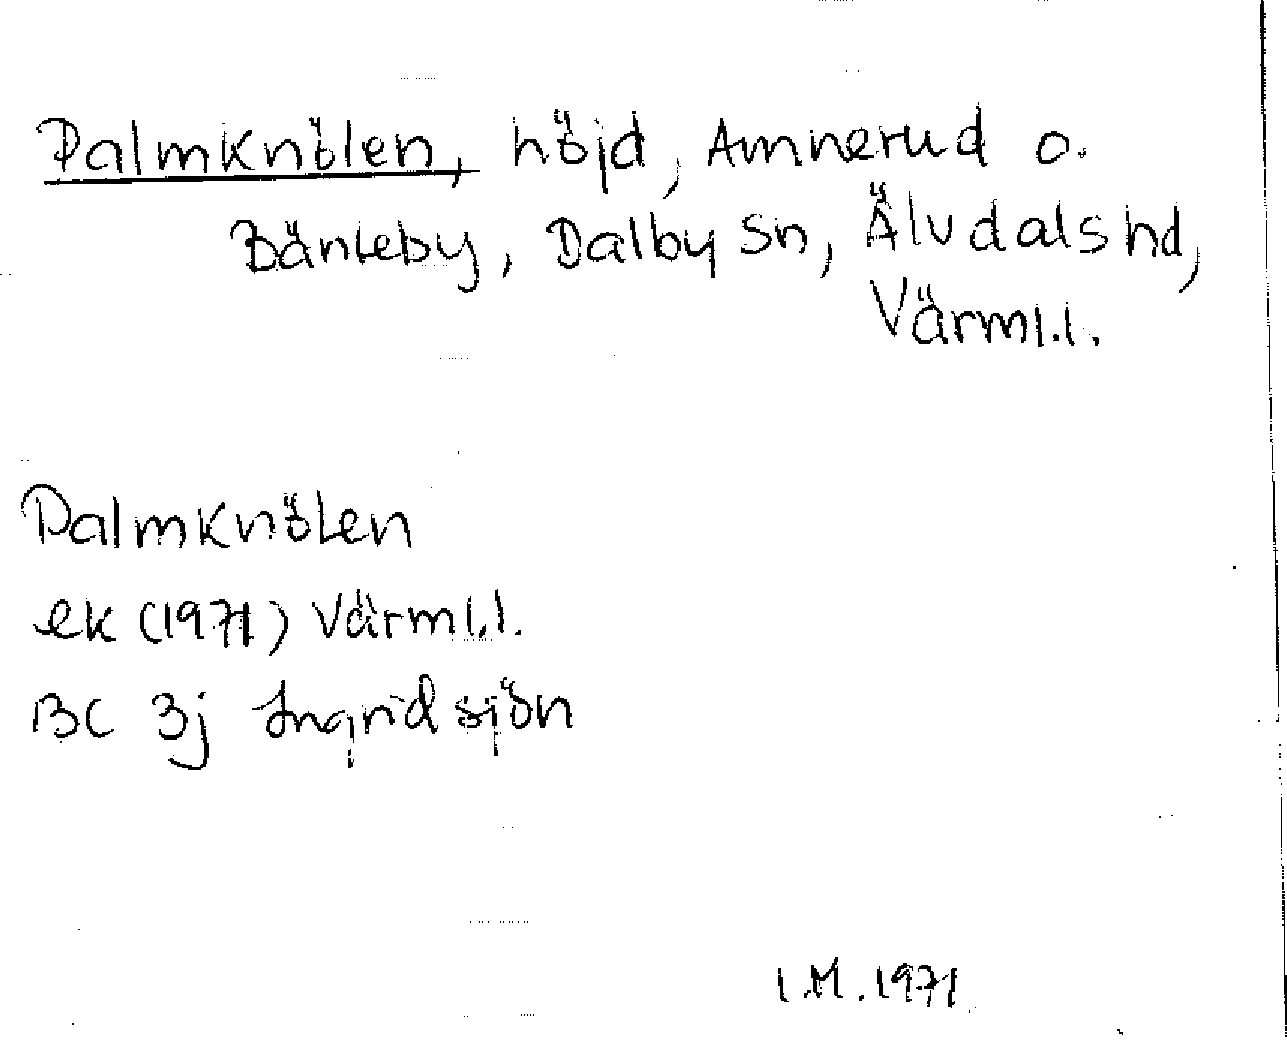 Palmknölen, höjd, Amnerud o.
Bänteby, Dalby sn, Älvdals hd,
Värml.l.
Palmknölen
ek (1971) Värml.l.
BC 3j Ingridsjön
I.M.1971